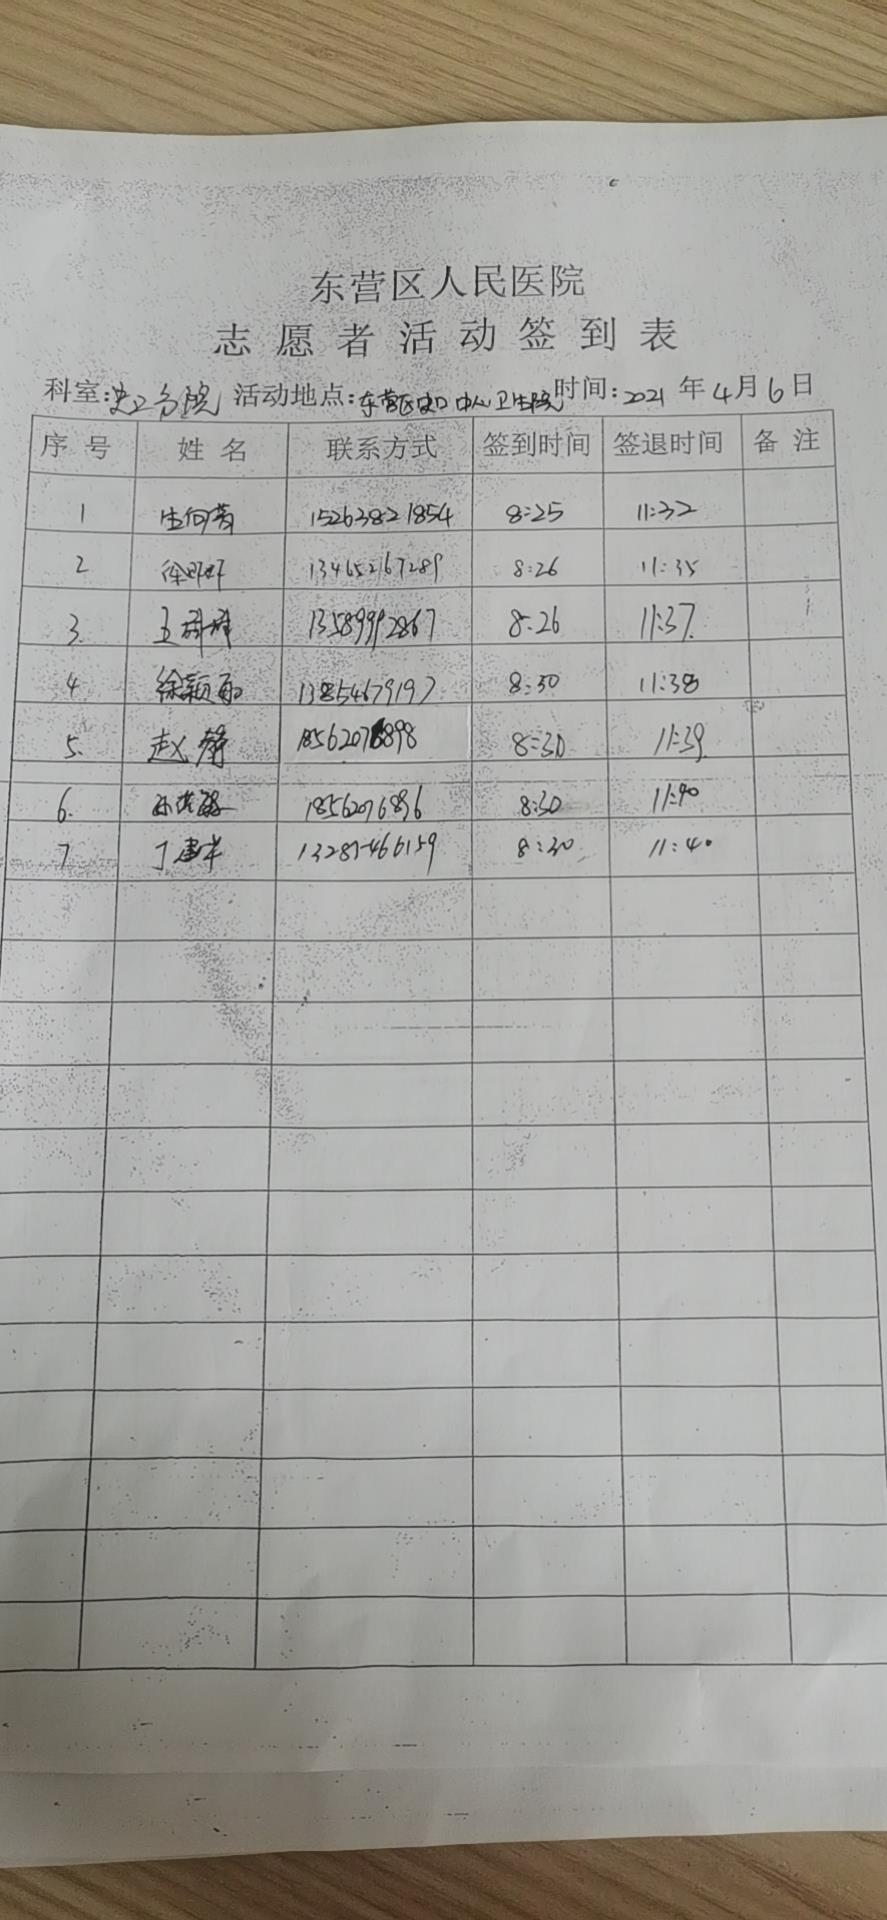 东营区人民医院
志愿者活动签到表
科室:史口分院 活动地点:东营区史口中心卫生院 时间:2021年4月6日
序号 姓名 联系方式 签到时间 签退时间 备注
1 15263821854 8:25 11:32
2 13465267289 8:26 11:35
3. 王 13589992867 8:26 11:37
4 徐颖 13854679197 8:30 11:38
5. 赵静 18562076898 8:30 11:39
6. 18562076896 8:30 11:40
7 丁建 13287466159 8:30 11:40